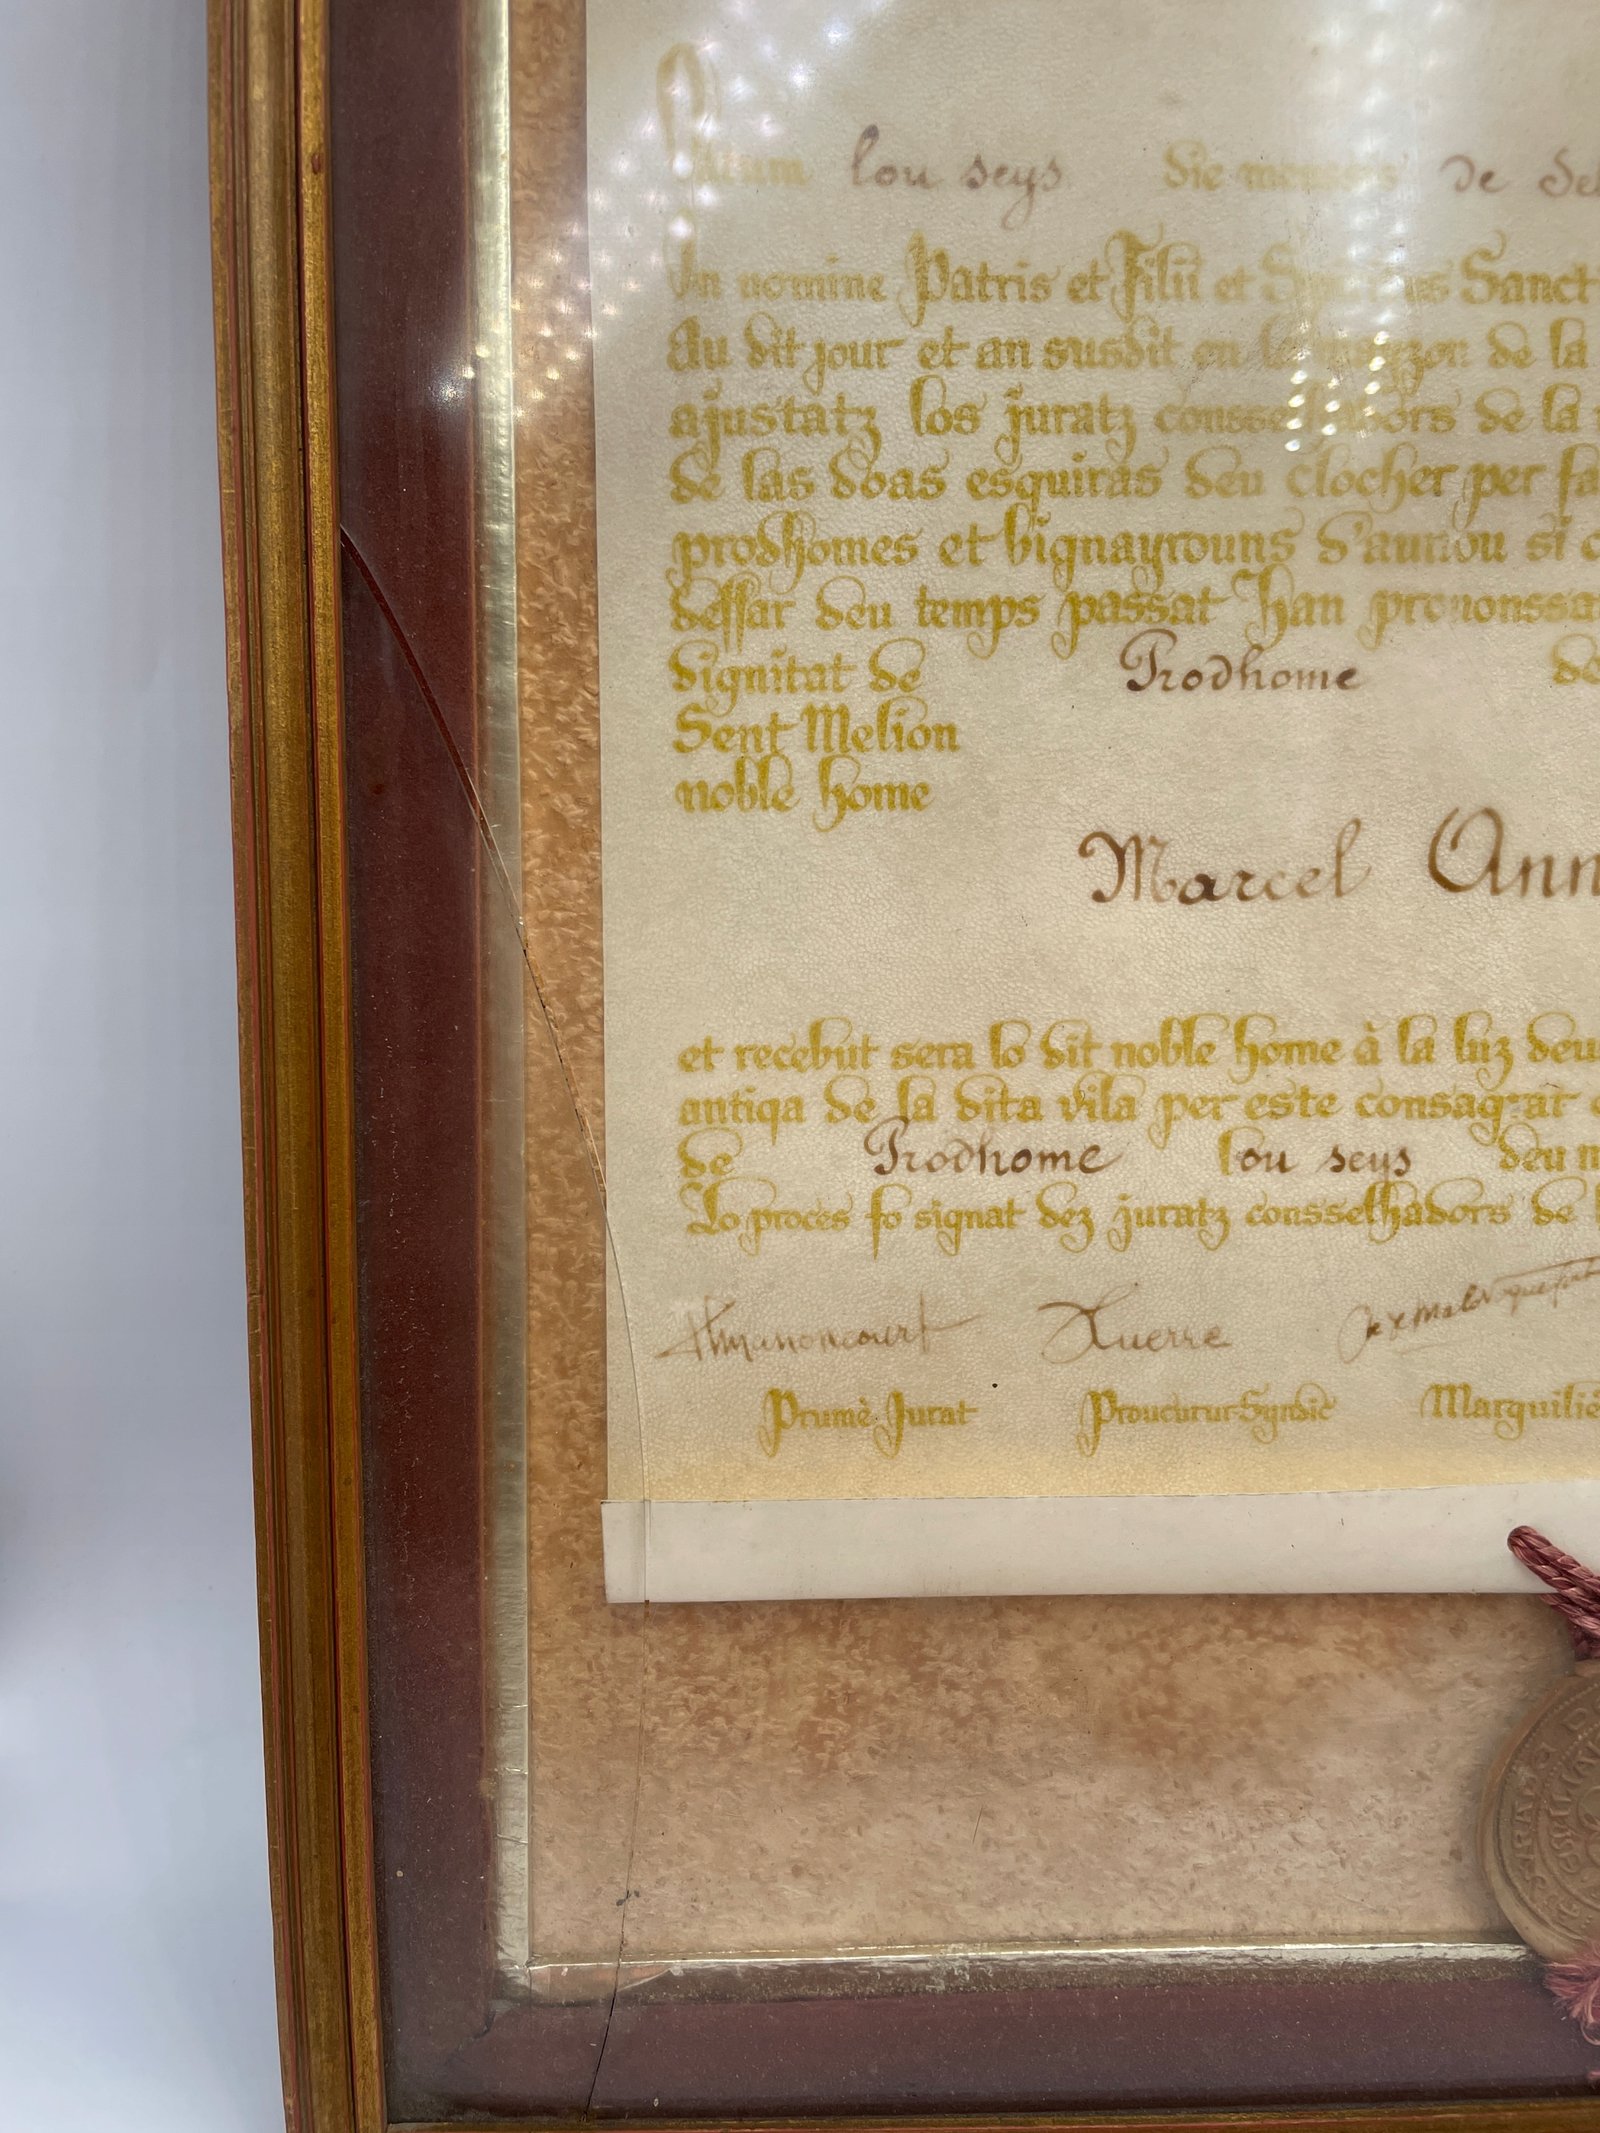 lou seys die de
In nomine Patris et Filii et Sancti
Au dit jour et an susdit en la mayzon de la
ajustatz los juratz consselhadors de la
de las doas esquiras deu clocher per
prodhomes et bignayrouns s'aunou si
deffar deu temps passat han
dignitat de Prodhome de
Sent Melion
noble home
Marcel
et recebut sera lo dit noble home à la luz deu
antiqa de la dita vila per este consagrat
de Prodhome lou seys deu
Lo procès fo signat dez juratz consselhadors de
Prumè Jurat Proucurur-Syndic